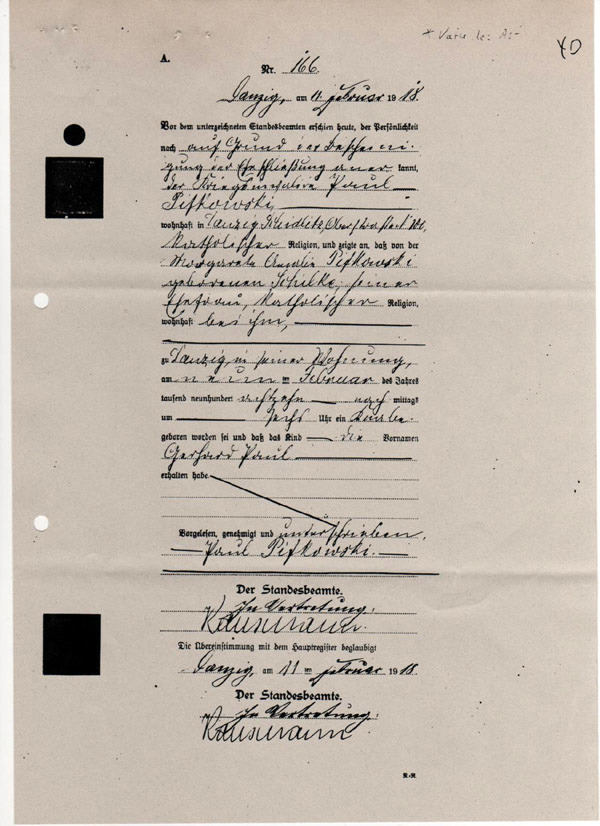 A.
Nr. 166.
Danzig, am 11. Februar 1918.
Vor dem unterzeichneten Standesbeamten erschien heute, der Persönlichkeit
nach auf Grund der Bescheini-
gung der Eheschließung aner kannt,
der Kriegsinvalide Paul
Pifkowski,
wohnhaft in Danzig Schidlitz, Oberstraße
Katholischer Religion, und zeigte an, daß von der
Margarete Amalie Pifkowski
geborenen Schilke, seiner
Ehefrau, Katholischer Religion,
wohnhaft bei ihm,
zu Danzig, in seiner Wohnung,
am neun ten Februar des Jahres
tausend neunhundert achtzehn nach mittags
um sechs Uhr ein Knabe
geboren worden sei und daß das Kind die Vornamen
Gerhard Paul
erhalten habe.
Vorgelesen, genehmigt und unterschrieben.
Paul Pifkowski.
Der Standesbeamte.
In Vertretung:
Die Übereinstimmung mit dem Hauptregister beglaubigt
Danzig, am 11 ten Februar 1918.
Der Standesbeamte.
In Vertretung: